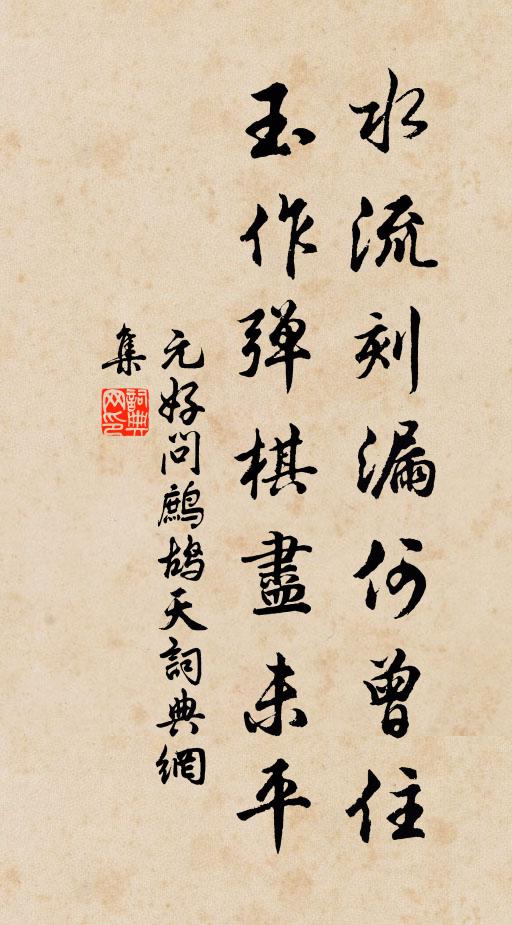 水流刻漏何曾住
玉作弹棋盡未平
元好问鷓鴣天詞典網
集
詞典网印